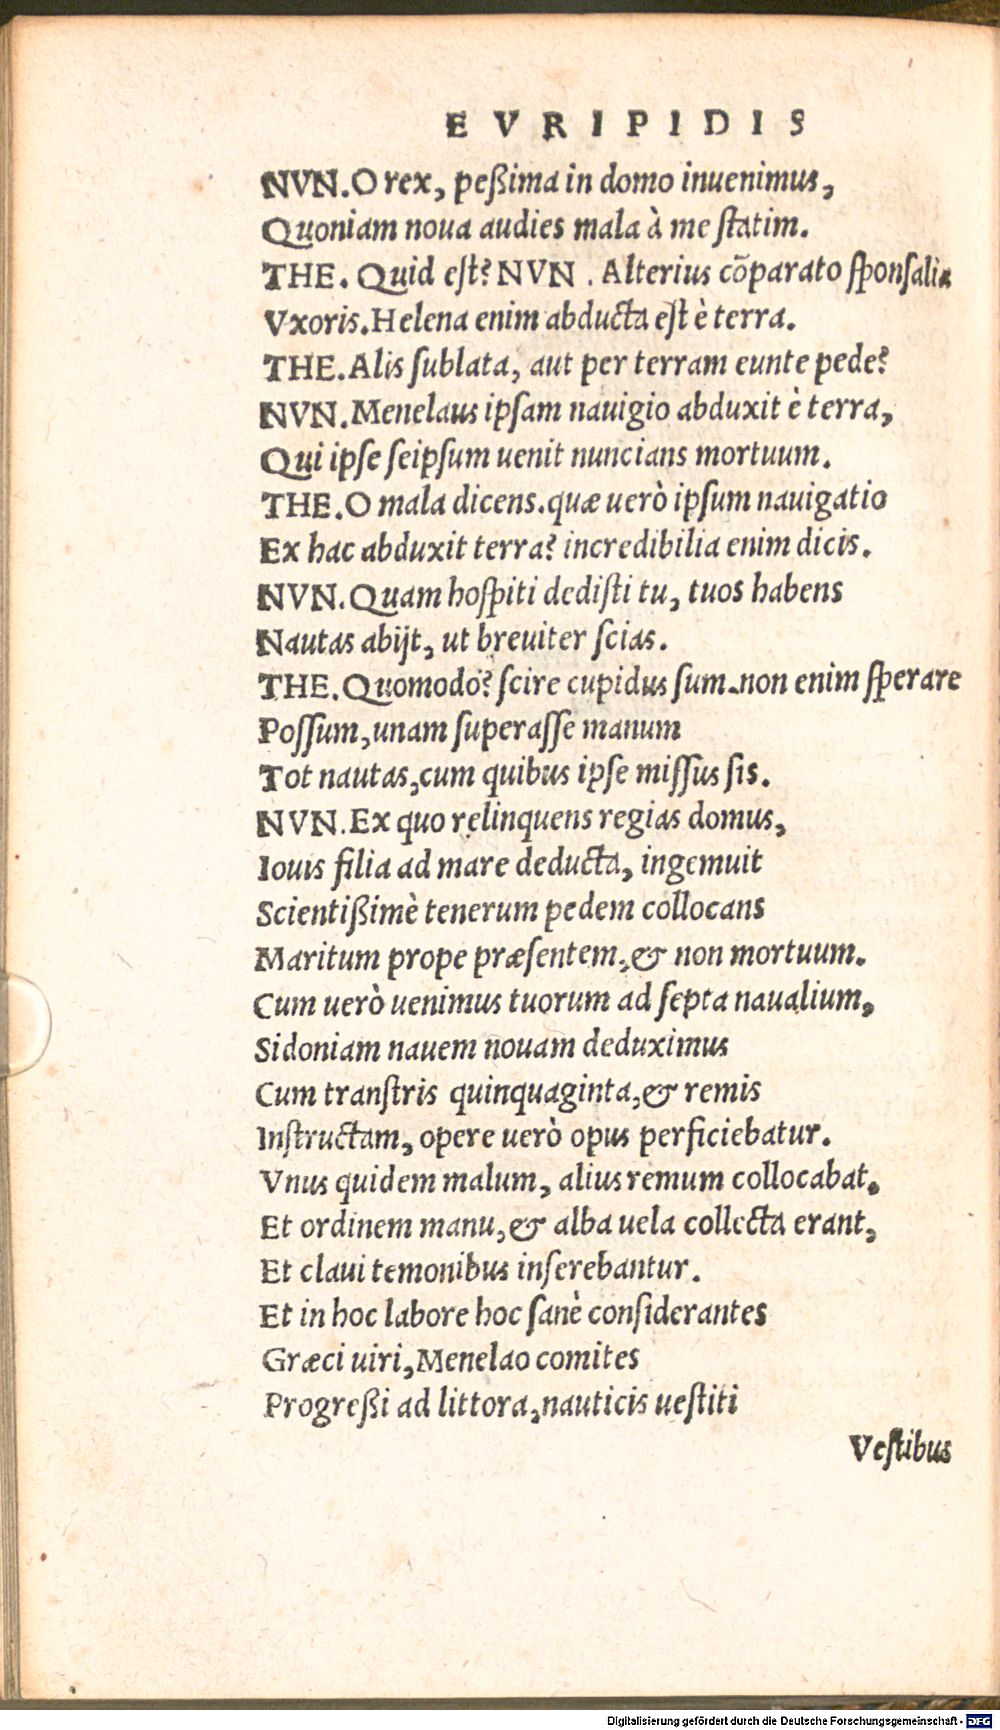 EVRIPIDIS
NVN. O rex, peßima in domo inuenimus,
Quoniam noua audies mala à me ſtatim.
THE. Quid eſt? NVN. Alterius cōparato ſponſalia
Vxoris. Helena enim abducta eſt è terra.
THE. Alis ſublata, aut per terram eunte pede?
NVN. Menelaus ipſam nauigio abduxit è terra,
Qui ipſe ſeipſum uenit nuncians mortuum.
THE. O mala dicens. quæ uerò ipſum nauigatio
Ex hac abduxit terra? incredibilia enim dicis.
NVN. Quam hoſpiti dediſti tu, tuos habens
Nautas abijt, ut breuiter ſcias.
THE. Quomodo? ſcire cupidus ſum. non enim ſperare
Poſſum, unam superaſſe manum
Tot nautas, cum quibus ipſe miſſus ſis.
NVN. Ex quo relinquens regias domus,
Iouis filia ad mare deducta, ingemuit
Scientißimè tenerum pedem collocans
Maritum prope præſentem, & non mortuum.
Cum uerò uenimus tuorum ad ſepta naualium,
Sidoniam nauem nouam deduximus
Cum tranſtris quinquaginta, & remis
Inſtructam, opere uerò opus perficiebatur.
Vnus quidem malum, alius remum collocabat.
Et ordinem manu, & alba uela collecta erant,
Et claui temonibus inſerebantur.
Et in hoc labore hoc ſanè conſiderantes
Græci uiri, Menelao comites
Progreßi ad littora, nauticis ueſtiti
Veſtibus
Digitalisierung gefördert durch die Deutsche Forschungsgemeinschaft - DFG